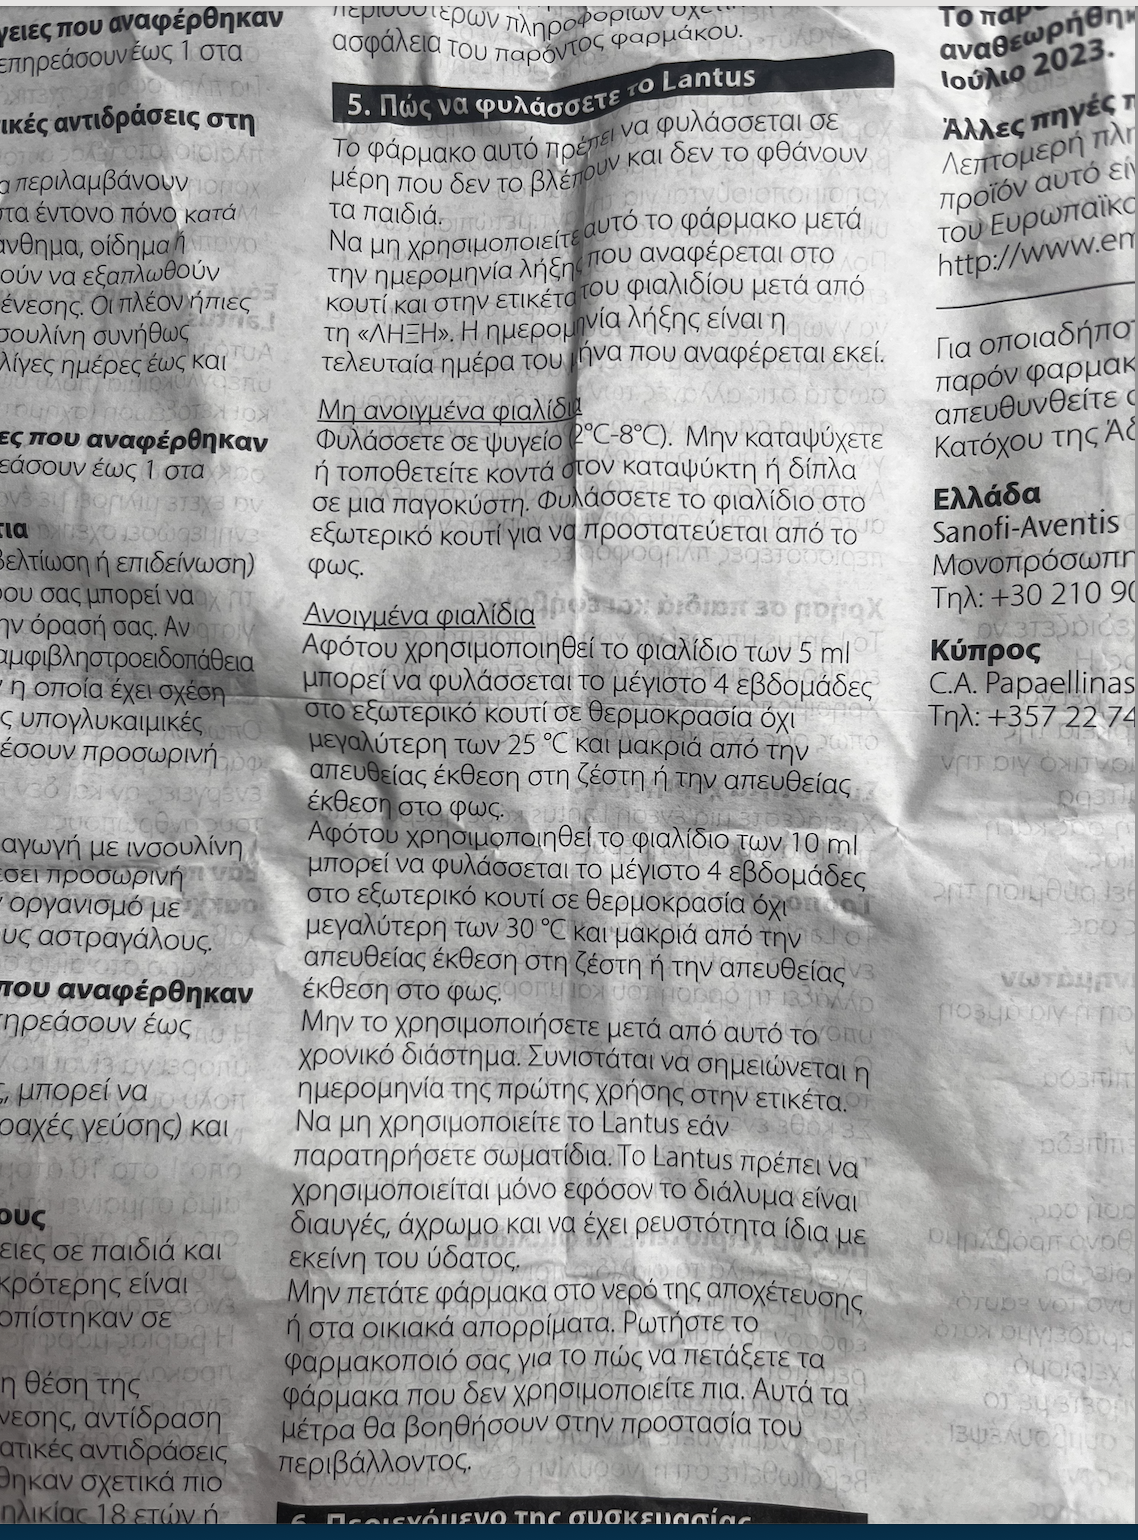 γειες που αναφέρθηκαν
επηρεάσουν έως 1 στα
ικές αντιδράσεις στη
α περιλαμβάνουν
τα έντονο πόνο κατά
άνθημα, οίδημα ή
ούν να εξαπλωθούν
ένεσης. Οι πλέον ήπιες
σουλίνη συνήθως
λίγες ημέρες έως και
ες που αναφέρθηκαν
εάσουν έως 1 στα
τια
βελτίωση ή επιδείνωση)
ρου σας μπορεί να
ην όρασή σας. Αν
αμφιβληστροειδοπάθεια
ν η οποία έχει σχέση
ς υπογλυκαιμικές
έσουν προσωρινή
αγωγή με ινσουλίνη
έσει προσωρινή
ν οργανισμό με
υς αστραγάλους.
που αναφέρθηκαν
τηρεάσουν έως
ς, μπορεί να
ραχές γεύσης) και
ους
ειες σε παιδιά και
κρότερης είναι
οπίστηκαν σε
η θέση της
νεσης, αντίδραση
ατικές αντιδράσεις
θηκαν σχετικά πιο
ηλικίας 18 ετών ή
περισσότερων πληροφοριών
ασφάλεια του παρόντος φαρμάκου.
5. Πώς να φυλάσσετε το Lantus
Το φάρμακο αυτό πρέπει να φυλάσσεται σε
μέρη που δεν το βλέπουν και δεν το φθάνουν
τα παιδιά.
Να μη χρησιμοποιείτε αυτό το φάρμακο μετά
την ημερομηνία λήξης που αναφέρεται στο
κουτί και στην ετικέτα του φιαλιδίου μετά από
τη «ΛΗΞΗ». Η ημερομηνία λήξης είναι η
τελευταία ημέρα του μήνα που αναφέρεται εκεί.
Μη ανοιγμένα φιαλίδια
Φυλάσσετε σε ψυγείο (2°C-8°C). Μην καταψύχετε
ή τοποθετείτε κοντά στον καταψύκτη ή δίπλα
σε μια παγοκύστη. Φυλάσσετε το φιαλίδιο στο
εξωτερικό κουτί για να προστατεύεται από το
φως.
Ανοιγμένα φιαλίδια
Αφότου χρησιμοποιηθεί το φιαλίδιο των 5 ml
μπορεί να φυλάσσεται το μέγιστο 4 εβδομάδες
στο εξωτερικό κουτί σε θερμοκρασία όχι
μεγαλύτερη των 25 °C και μακριά από την
απευθείας έκθεση στη ζέστη ή την απευθείας
έκθεση στο φως.
Αφότου χρησιμοποιηθεί το φιαλίδιο των 10 ml
μπορεί να φυλάσσεται το μέγιστο 4 εβδομάδες
στο εξωτερικό κουτί σε θερμοκρασία όχι
μεγαλύτερη των 30 °C και μακριά από την
απευθείας έκθεση στη ζέστη ή την απευθείας
έκθεση στο φως.
Μην το χρησιμοποιήσετε μετά από αυτό το
χρονικό διάστημα. Συνιστάται να σημειώνεται η
ημερομηνία της πρώτης χρήσης στην ετικέτα.
Να μη χρησιμοποιείτε το Lantus εάν
παρατηρήσετε σωματίδια. Το Lantus πρέπει να
χρησιμοποιείται μόνο εφόσον το διάλυμα είναι
διαυγές, άχρωμο και να έχει ρευστότητα ίδια με
εκείνη του ύδατος.
Μην πετάτε φάρμακα στο νερό της αποχέτευσης
ή στα οικιακά απορρίματα. Ρωτήστε το
φαρμακοποιό σας για το πώς να πετάξετε τα
φάρμακα που δεν χρησιμοποιείτε πια. Αυτά τα
μέτρα θα βοηθήσουν στην προστασία του
περιβάλλοντος.
6. Περιεχόμενο της συσκευασίας
Το παρ
αναθεωρήθηκ
Ιούλιο 2023.
Άλλες πηγές π
Λεπτομερή πλη
προϊόν αυτό είν
του Ευρωπαϊκο
http://www.em
Για οποιαδήποτ
παρόν φαρμακ
απευθυνθείτε σ
Κατόχου της Άδ
Ελλάδα
Sanofi-Aventis
Μονοπρόσωπη
Τηλ: +30 210 90
Κύπρος
C.A. Papaellinas
Τηλ: +357 22 74